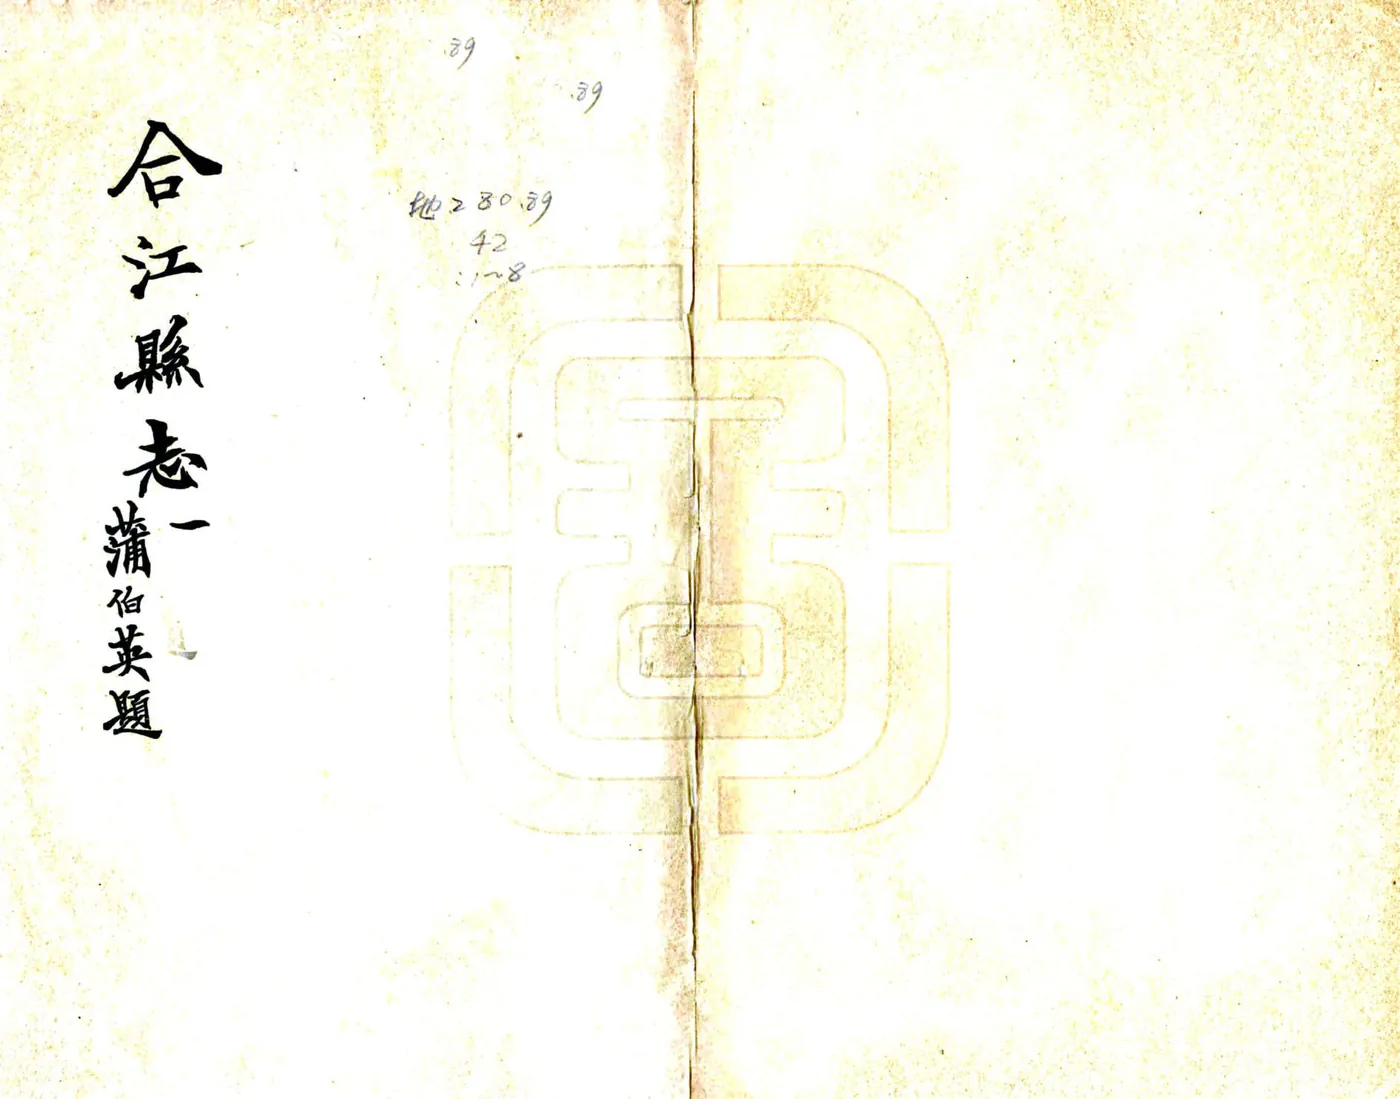 合江縣志
一
蒲伯英題
.89
.89
地.280.89
42
:1~8